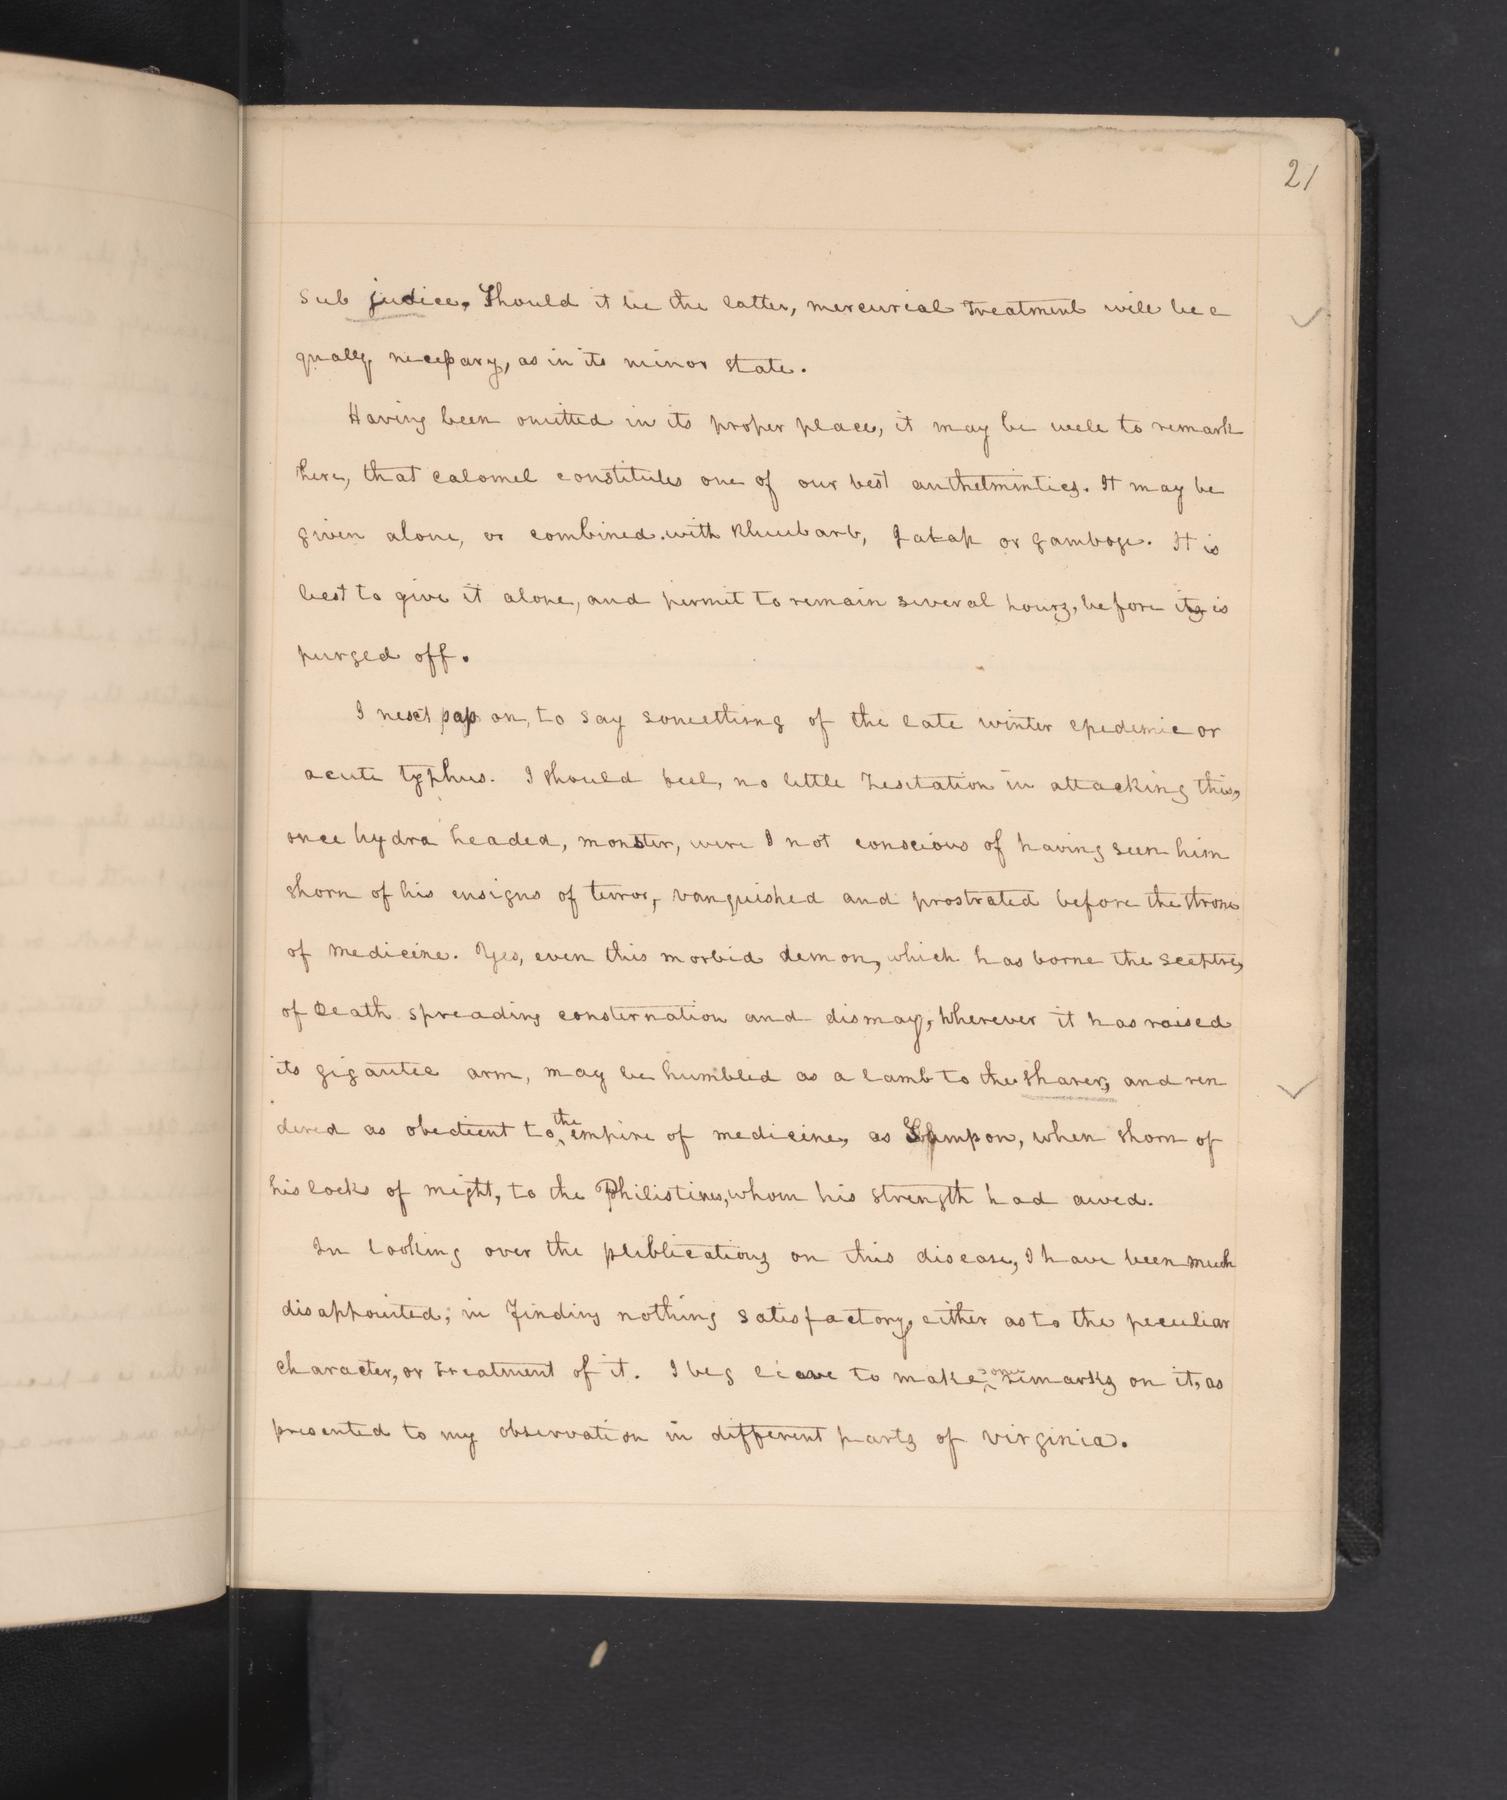 21
sub judice. Should it be the latter, mercurial treatment will be e
qually necessary, as in its minor state.
Having been omitted in its proper place, it may be well to remark
here, that calomel constitutes one of our best anthelmintics. It may be
given alone, or combined with Rhubarb, Jalap or gamboge. It is
best to give it alone, and permit to remain several hours, before it is
purged off.
I next pass on, to say something of the late winter epidemic or
acute typhus. I should feel, no little hesitation in attacking this,
once hydra headed, monster, were I not conscious of having seen him
shorn of his ensigns of terror, vanquished and prostrated before the throne
of medicine. Yes, even this morbid demon, which has borne the sceptre,
of Death spreading consternation and dismay, wherever it has raised
its gigantic arm, may be humbled as a lamb to the sharer, and ren
dered as obedient to the empire of medicine, as Sampson, when shorn of
his locks of might, to the Philistines, whom his strength had awed.
In looking over the publications on this disease, I have been much
disappointed; in finding nothing satisfactory, either as to the peculiar
character, or treatment of it. I beg leave to make some remarks on it, as
presented to my observation in different parts of virginia.